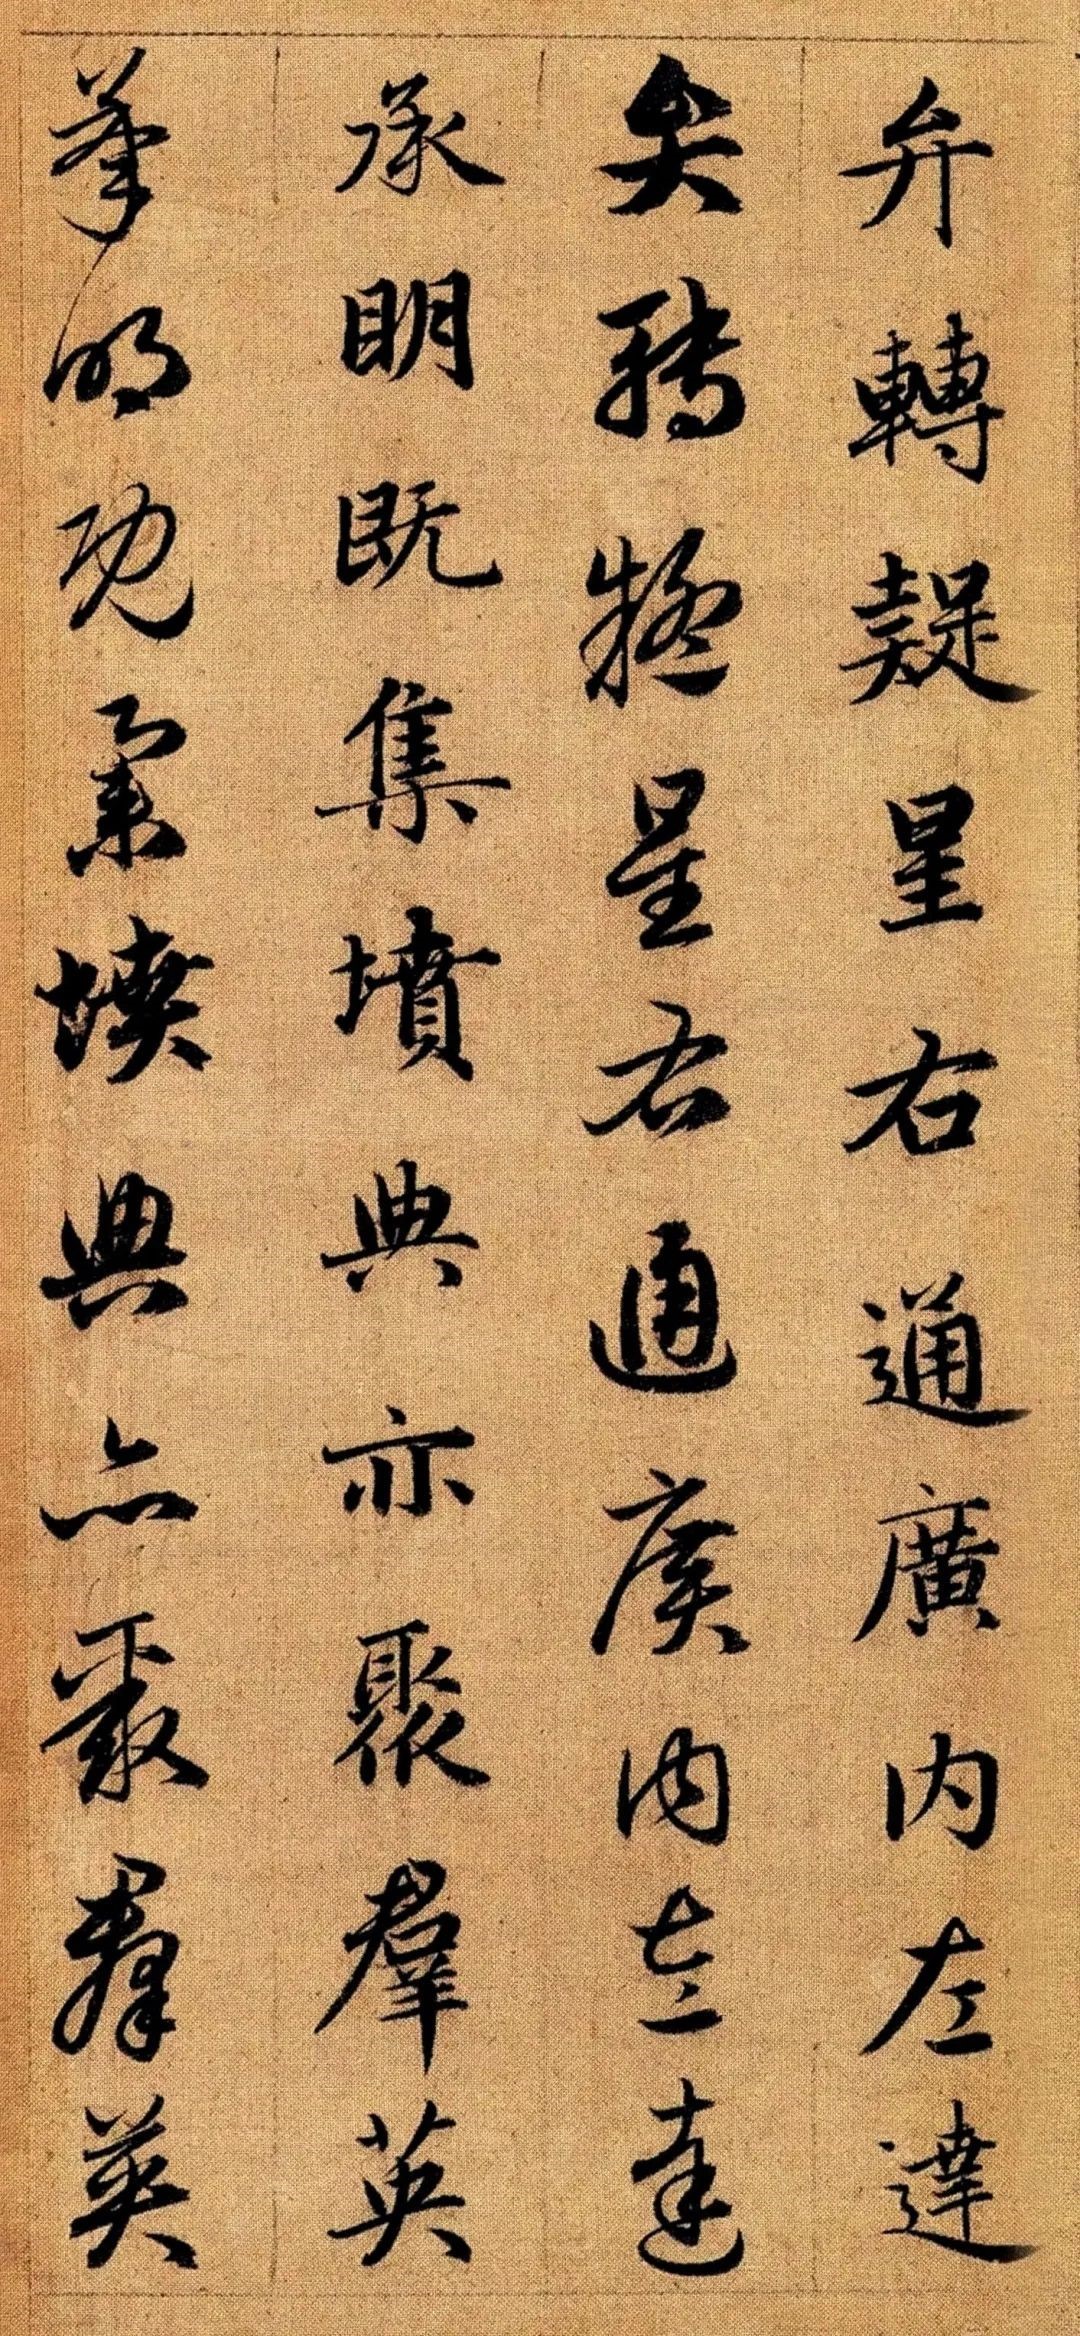 弁轉疑星右通廣內左達
弁轉疑星右通廣內左達
承明既集墳典亦聚群英
承明既集墳典亦聚群英